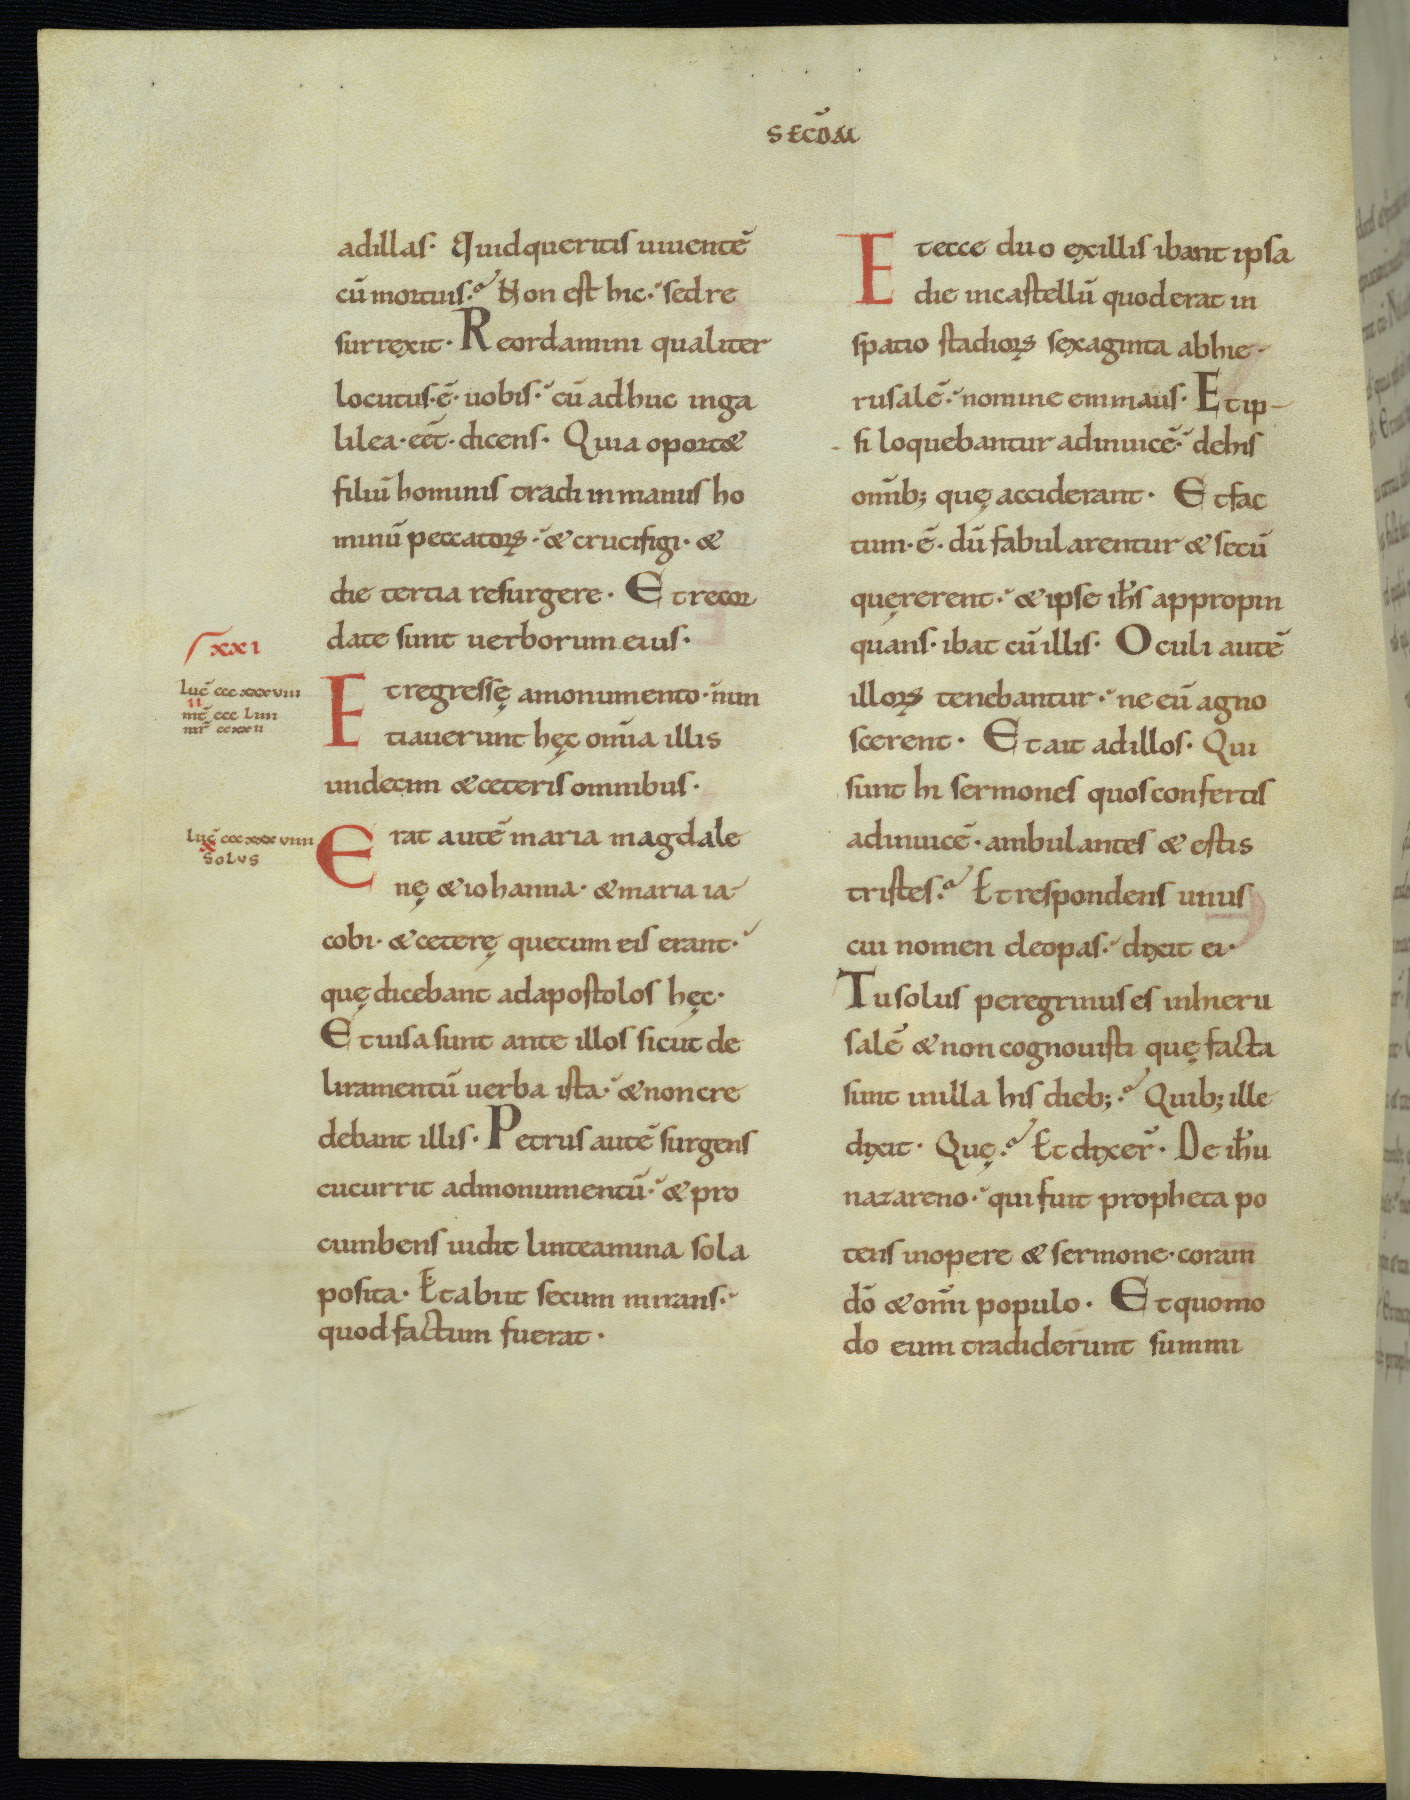 SECDM
adillas· Quid queritis uiuentē
cū mortuis? Non est hic· sed re
surrexit· Recordamini qualiter
locutus·ē·uobis· cū adhuc inga
lilea·eēt·dicens· Quia oportet
filiū hominis tradi in manus ho
minū peccatoꝝ· & crucifigi· &
die tertia resurgere· Et recor
date sunt uerborum eius·
XXI
Luc̄ cccxxxviii
ii
mt̄ cccLiiii
mr̄ ccxxii
Et regressę amonumento· nun
tiauerunt hęc om̄ia illis
undecim & ceteris omnibus·
Luc̄ cccxxxviiii
x
SOLVS
Erat autē maria magdale
nę & iohanna· & maria ia-
cobi· & ceterę quecum eis erant·
quę dicebant adapostolos hęc·
Et uisa sunt ante illos sicut de
liramentū uerba ista· & non cre
debant illis· Petrus autē surgens
cucurrit admonumentū· & pro
cumbens uidit linteamina sola
posita· Et abiit secum mirans·
quod factum fuerat·
Et ecce duo exillis ibant ipsa
die incastellū quod erat in
spatio stadioꝝ sexaginta abhie-
rusalē· nomine emmaus· Et ip-
si loquebantur adinuicē· dehis
omīb; quę acciderant· Et fac
tum·ē·dū fabularentur & secū
quęrerent· & ipse ih̄s appropin
quans· ibat cū illis· Oculi autē
illoꝝ tenebantur· ne eū agno
scerent· Et ait adillos· Qui
sunt hi sermones quos confertis
adinuicē· ambulantes & estis
tristes? Et respondens unus
cui nomen cleopas· dixit ei·
Tu solus peregrinus es inhieru
salē & non cognouisti quę facta
sunt inilla his dieb;? Quib; ille
dixit· Quę? Et dixer̄· De ih̄u
nazareno· qui fuit propheta po
tens inopere & sermone· coram
dō & om̄i populo· Et quomo
do eum tradiderunt summi